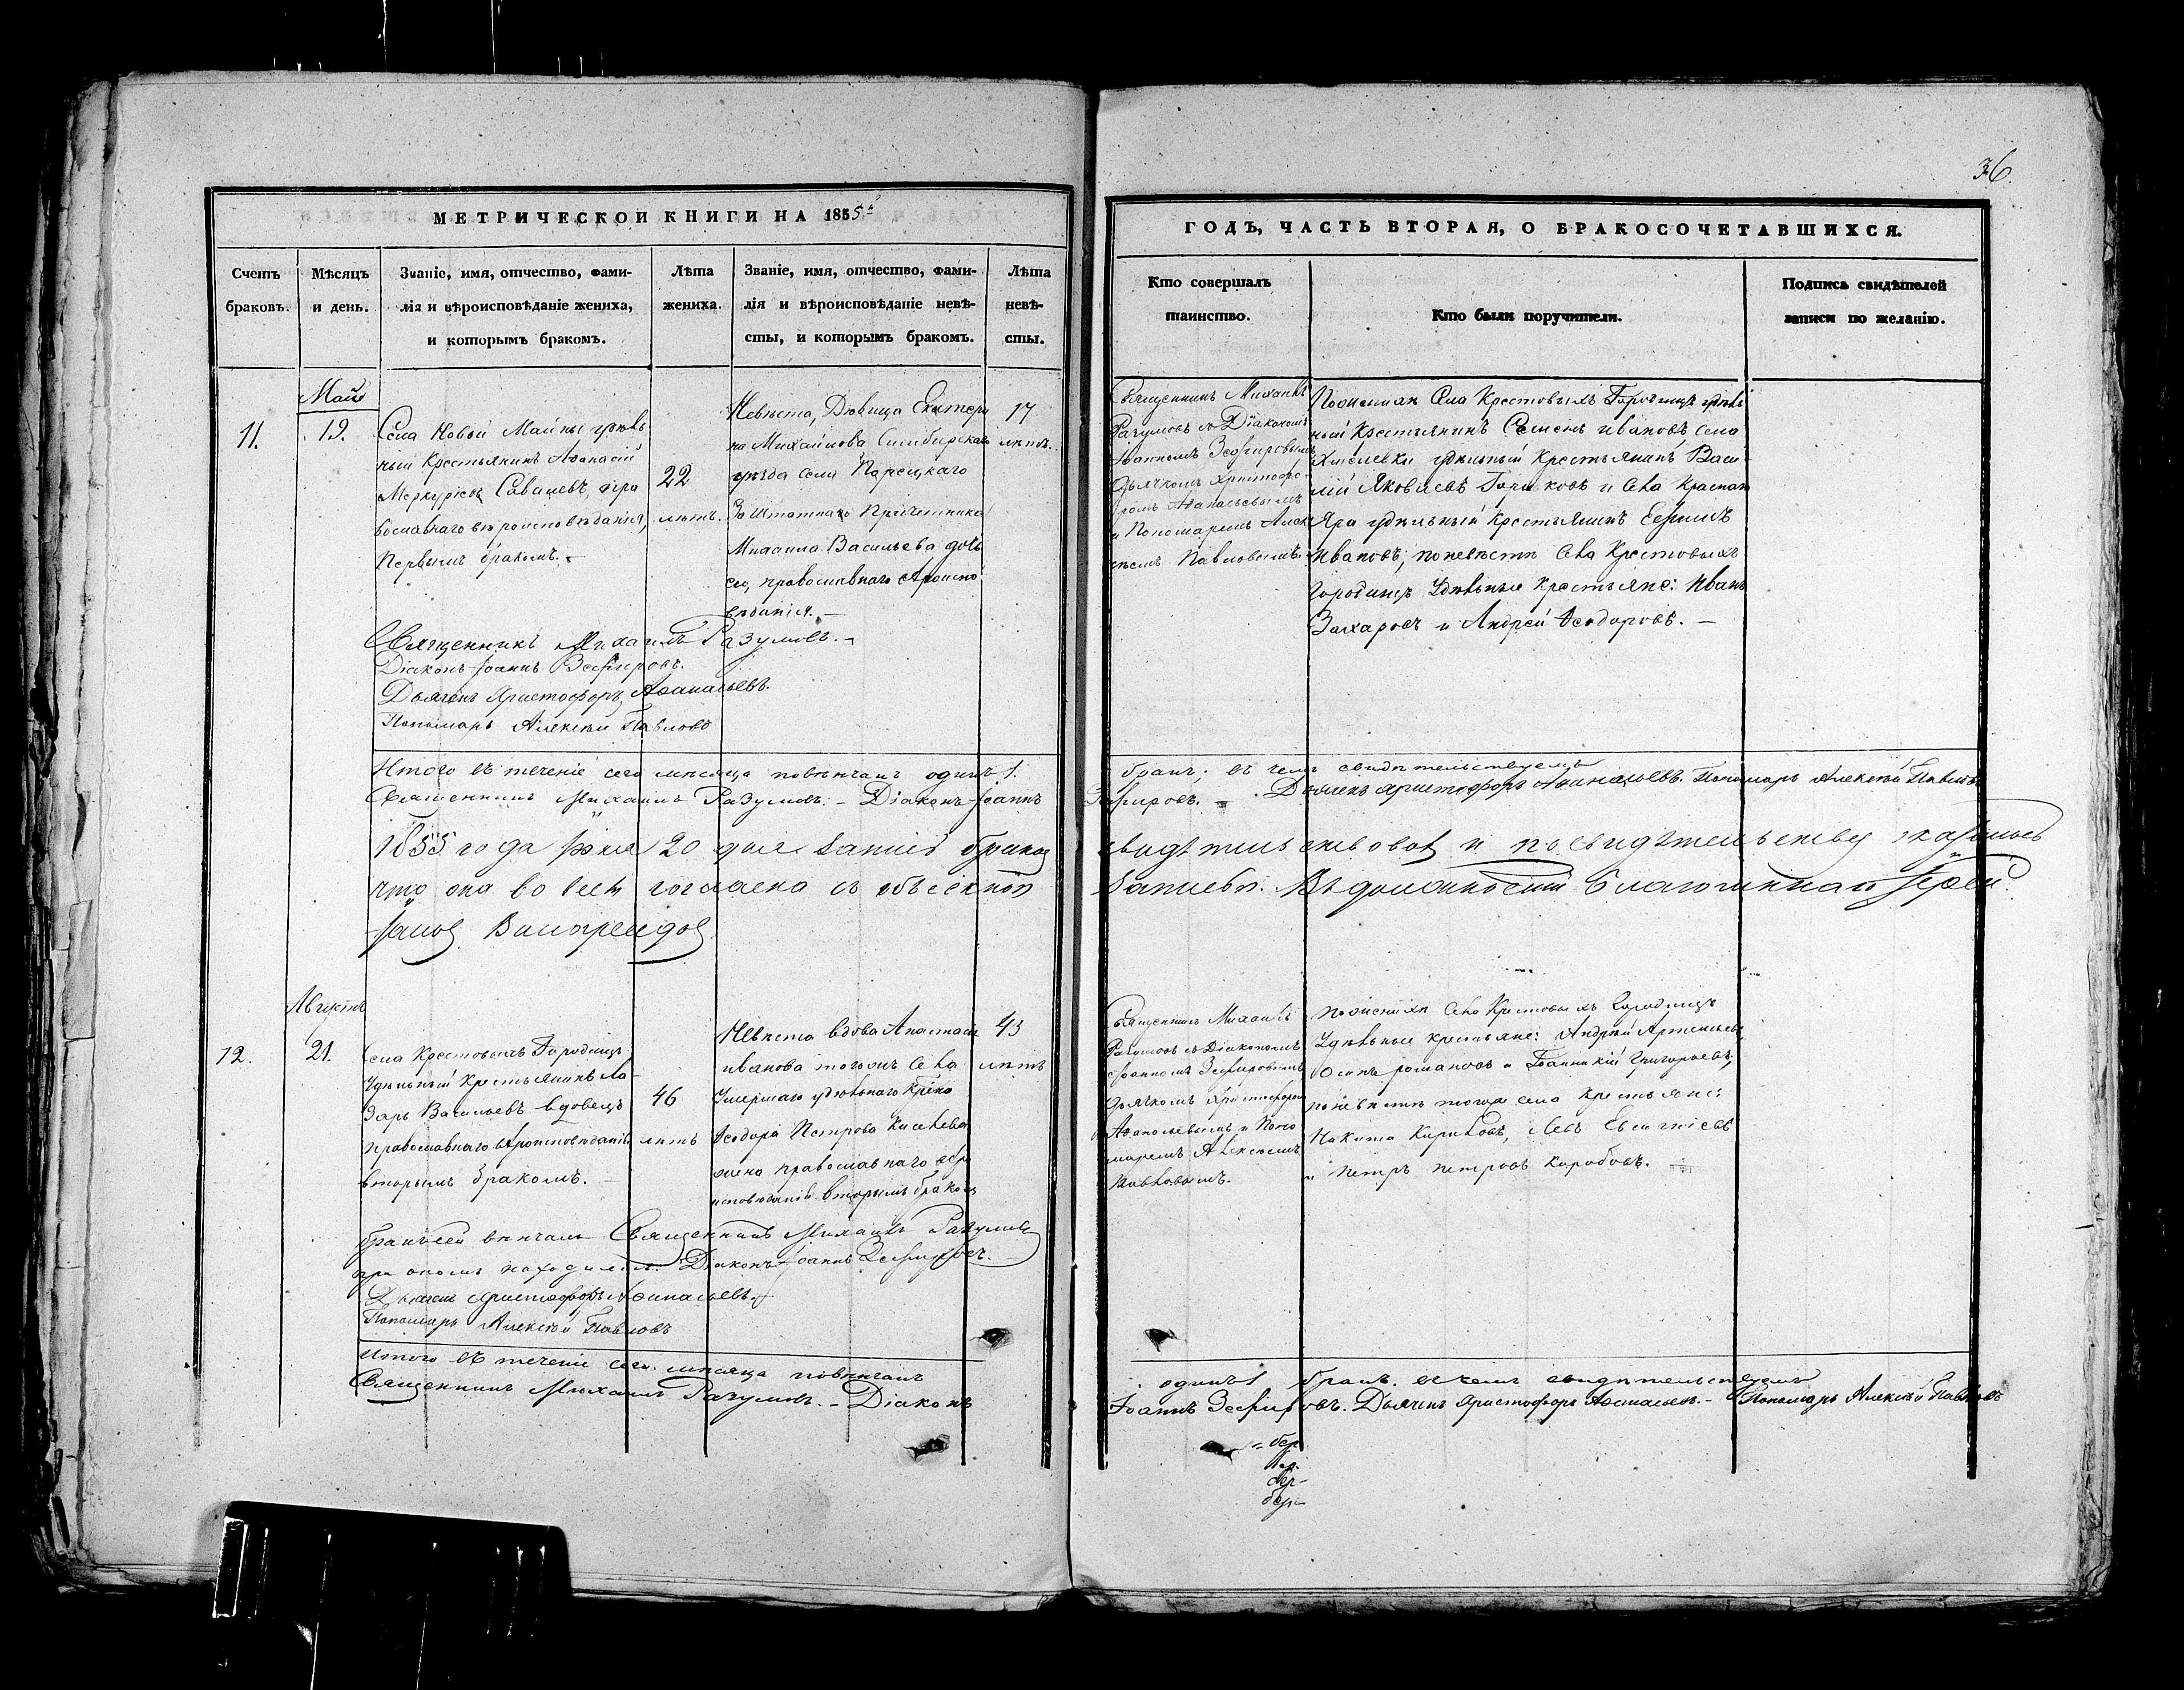 36.
МЕТРИЧЕСКОЙ КНИГИ НА 1855й
ГОДЪ, ЧАСТЬ ВТОРАЯ, О БРАКОСОЧЕТАВШИХСЯ.
Счетъ
браковъ.
Мѣсяцъ
и день.
Званіе, имя, отчество, фами-
лія и вѣроисповѣданіе жениха,
и которымъ бракомъ.
Лѣта
жениха.
Званіе, имя, отчество, фами-
лія и вѣроисповѣданіе невѣ-
сты, и которымъ бракомъ.
Лѣта
невѣ-
сты.
Кто совершалъ
таинство.
Кто были поручители.
Подпись свидѣтелей
записи по желанію.
11.
Май
19.
Села Новой Майны удѣль
ный Крестьянинъ Аѳанасій
Меркуріевъ Савачевъ, пра
вославнаго вѣроисповѣданія,
Первымъ бракомъ. -
22
лѣтъ.
Невѣста, Дѣвица Екатери
на Михайлова Симбирскаго
уѣзда села Порецкаго
Заштатнаго Причетника
Михаила Васильева дочь
его, православнаго вѣроиспо
вѣданія. -
17
лѣтъ.
Священникъ Михаилъ
Разумовъ съ Діакономъ
Іоанномъ Зефировымъ
Дьячкомъ Христофо-
ромъ Аѳанасьевымъ
и Пономаремъ Алек
сѣемъ Павловымъ.
По женихѣ Села Крестовыхъ Городищъ удѣль
ный Крестьянинъ Семенъ Ивановъ села
Хмѣлевки удѣльный Крестьянинъ Васи-
лій Яковлевъ Горшковъ и Села Краснаго
Яра удѣльный Крестьянинъ Ефимъ
Ивановъ; по невѣстѣ Села Крестовыхъ
Городищъ Удѣльные Крестьяне: Иванъ
Захаровъ и Андрей Ѳеодоровъ. -
Священникъ Михаилъ Разумовъ. -
Діаконъ Іоаннъ Зефировъ.
Дьячекъ Христофоръ Аѳанасьевъ.
Пономарь Алексѣй Павловъ
Итого въ теченіе сего мѣсяца повѣнчанъ одинъ. 1.
бракъ; въ чемъ свидѣтельствуемъ
Священникъ Михаилъ Разумовъ. - Діаконъ Іоаннъ
Зефировъ. - Дьячекъ Христофоръ Аѳанасьевъ. Пономарь Алексѣй Павловъ
1855 года 20 дня записи браков
свидѣтельствовалъ и по свидѣтельству оказалось
что она во всемъ согласна съ обыскной
записью. Вѣдомственный благочинный Іерей
12.
Августъ
21.
Села Крестовыхъ Городищъ
Удѣльный Крестьянинъ Ла-
зарь Васильевъ вдовецъ
православнаго вѣроисповѣданія
вторымъ бракомъ. -
46
лѣтъ
Невѣста вдова Анастасія
Иванова того жъ Села
Умершаго удѣльнаго Кр-на
Ѳеодора Петрова Киселева
жена православнаго вѣро
исповѣданія вторымъ бракомъ
43
лѣтъ
Священникъ Михаилъ
Разумовъ съ Діакономъ
Іоанномъ Зефировымъ
Дьячкомъ Христофоромъ
Аѳанасьевымъ и Поно
маремъ Алексѣемъ
Павловымъ.
По женихѣ Села Крестовыхъ Городищъ
Удѣльные крестьяне: Андрей Артемьевъ,
Осипъ Романовъ и Іоанникій Григорьевъ;
по невѣстѣ тогожъ села Крестьяне:
Никита Кириловъ, Левъ Евсигніевъ
и Петръ Петровъ Коробовъ. -
Бракъ сей вѣнчалъ Священникъ Михаилъ Разумовъ
при ономъ находились: Діаконъ Іоаннъ Зефировъ. -
Дьячекъ Христофоръ Аѳанасьевъ.
Пономарь Алексѣй Павловъ
Итого въ теченіе сего мѣсяца повѣнчанъ
одинъ 1 бракъ. въ чемъ свидѣтельствуемъ
Священникъ Михаилъ Разумовъ. - Діаконъ
Іоаннъ Зефировъ. Дьячекъ Христофоръ Аѳанасьевъ. - Пономарь Алексѣй Павловъ